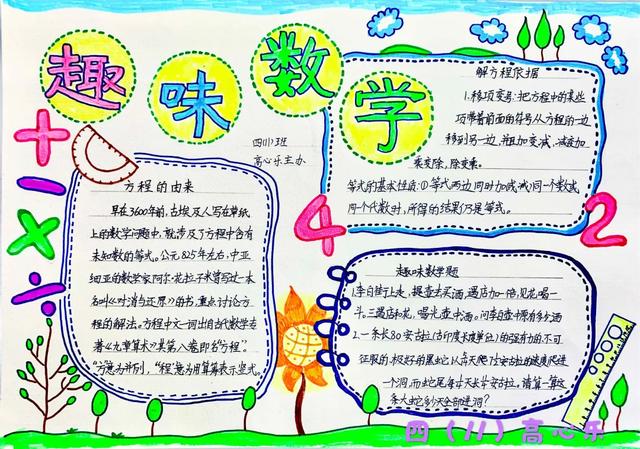 趣味数学
四(11)班
高心乐主办
方程的由来
早在3600年前,古埃及人写在草纸
上的数学问题中,就涉及了方程中含有
未知数的等式。公元825年左右,中亚
细亚的数学家阿尔·花拉子米曾写过一本
名叫《对消与还原》的书,重点讨论方
程的解法。方程中文一词出自古代数学专
著《九章算术》其第八卷即名“方程”。
“方”意为并列,“程”意为用算筹表示竖式。
解方程依据
1.移项变号:把方程中的某些
项带着前面的符号从方程的一边
移到另一边,并且加变减,减变加
乘变除,除变乘。
等式的基本性质:①等式两边同时加或减同一个数或
同一个代数时,所得的结果仍是等式。
4
2
趣味数学题
1.李白街上走,提壶去买酒,遇店加一倍,见花喝一
斗,三遇店和花,喝光壶中酒。问李白壶中原有多少酒
2.一条长80安古拉(古印度长度单位)的强有力的、不可
征服的、极好的黑蛇以
天爬7
安古拉的速度爬进
一个洞,而蛇尾每
天长
安古拉。请算一算这
条大蛇多少天全部进洞?
四(11)高心乐